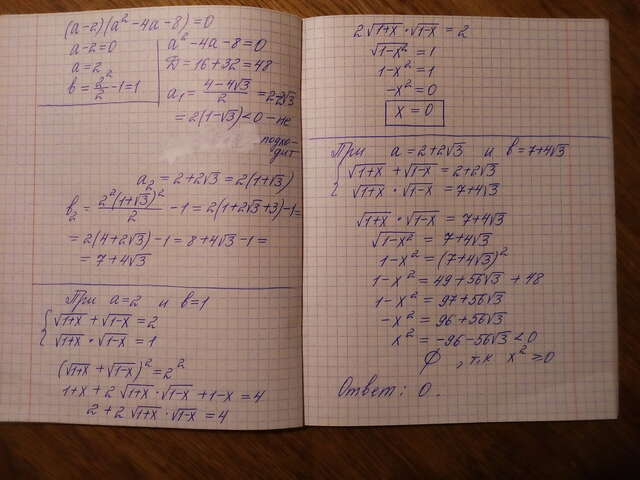 (a-2)(a²-4a-8)=0
a-2=0
a=2
b=2²/2-1=1
a²-4a-8=0
D=16+32=48
a₁=(4-4√3)/2=2-2√3
=2(1-√3)<0-не
подхо-
дит
a₂=2+2√3=2(1+√3)
b₂=2²(1+√3)²/2-1=2(1+2√3+3)-1=
=2(4+2√3)-1=8+4√3-1=
=7+4√3
При a=2 и b=1
{√1+x + √1-x = 2
√1+x · √1-x = 1
(√1+x + √1-x)²=2²
1+x+2√1+x · √1-x +1-x=4
2+2√1+x · √1-x = 4
2√1+x · √1-x = 2
√1-x² = 1
1-x² = 1
-x² = 0
x = 0
При a=2+2√3 и b=7+4√3
{√1+x + √1-x = 2+2√3
√1+x · √1-x = 7+4√3
√1+x · √1-x = 7+4√3
√1-x² = 7+4√3
1-x² = (7+4√3)²
1-x² = 49+56√3+48
1-x² = 97+56√3
-x² = 96+56√3
x² = -96-56√3<0
∅, т.к x²≥0
Ответ: 0.